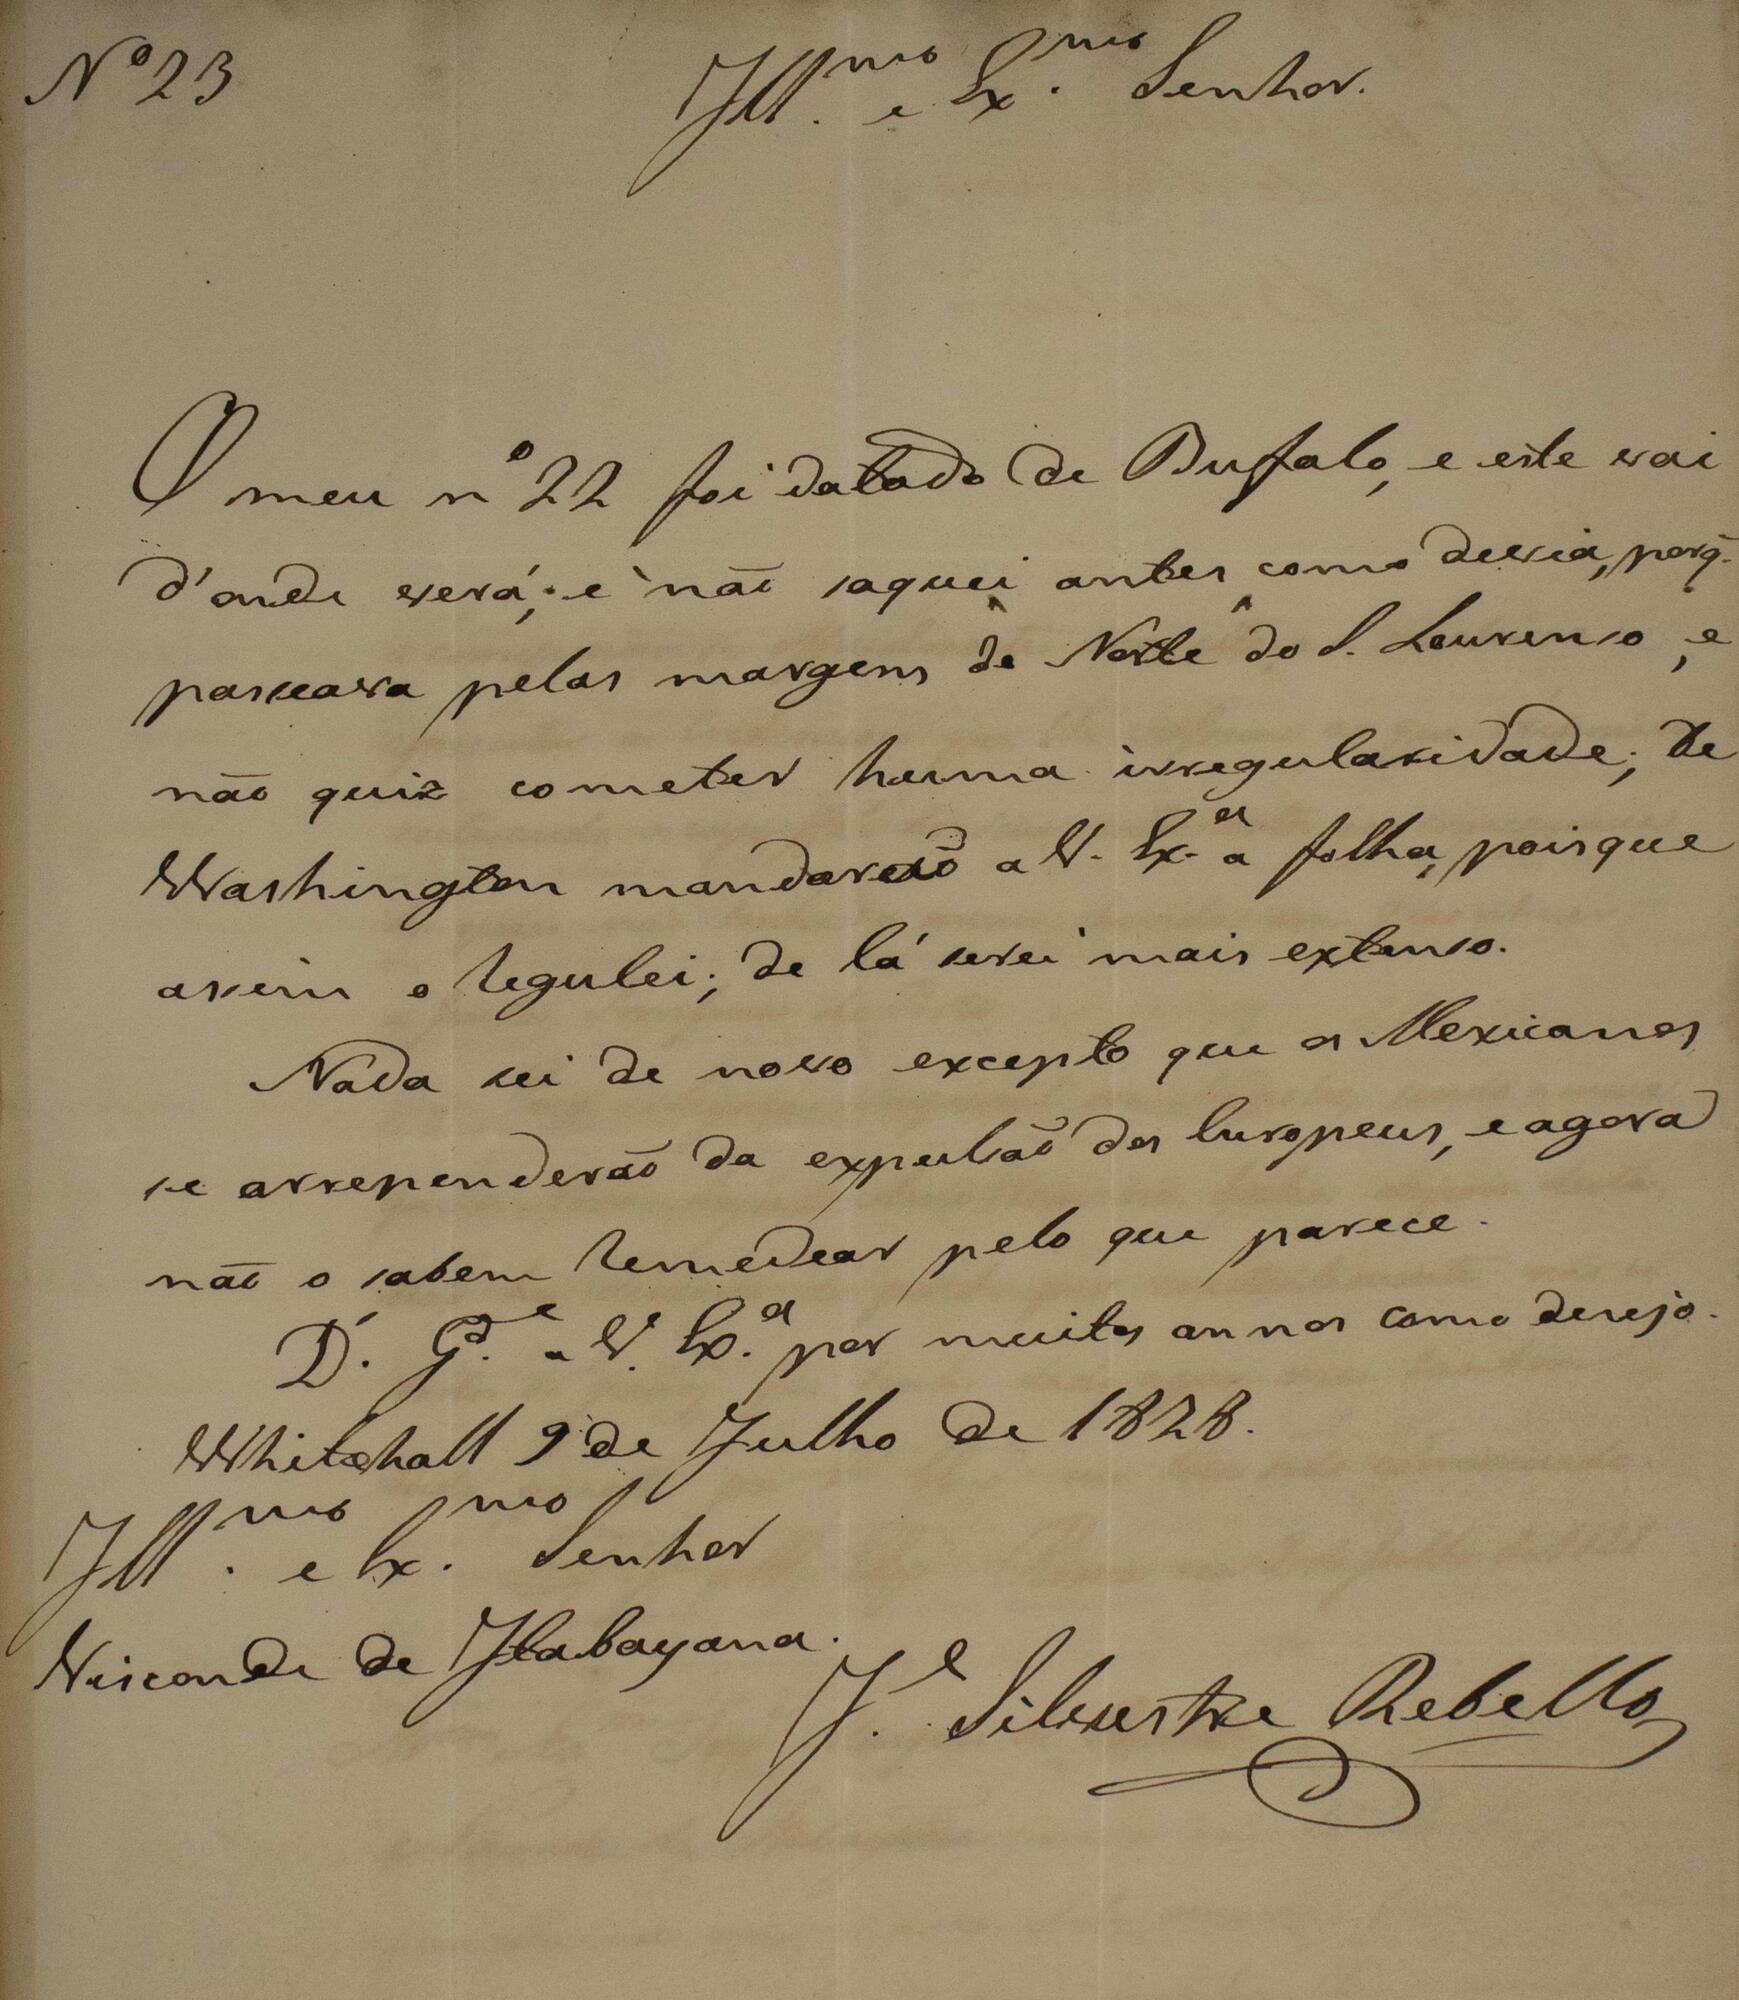 Nº 23
Ill.mo e Ex.mo Senhor.
O meu nº 22 foi datado de Bufalo, e este vai
d'onde verá; e não saquei antes como devia, porq̃.
passeava pelas margens do Norte do S. Lourenso, e
não quiz cometer huma irregularidade; de
Washington mandarei a V. Ex.a a folha, poisque
assim o regulei; de lá serei mais extenso.
Nada sei de novo excepto que os Mexicanos
se arrependerão da expulsão dos Europeus, e agora
não o sabem remedear pelo que parece.
D.s G.de a V. Ex.a por muitos annos como desejo.
Whitehall 9 de Julho de 1828.
Ill.mo e Ex.mo Senhor
Visconde de Itabayana.
J.e Silvestre Rebello